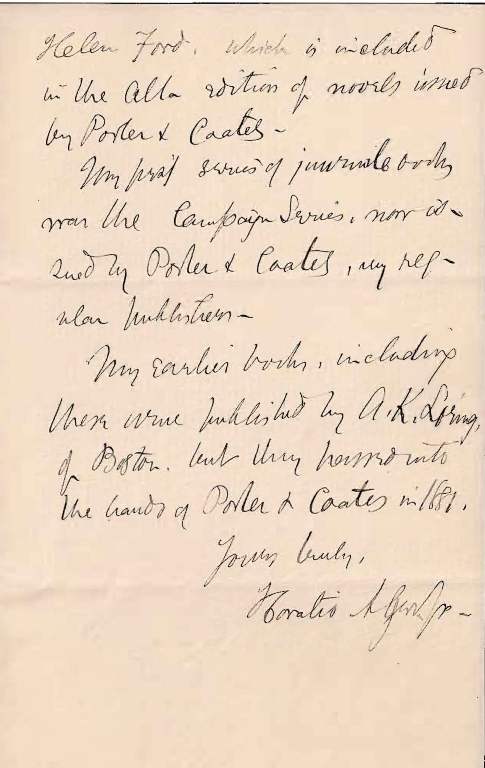 Helen Ford, which is included
in the Alta edition of novels issued
by Porter & Coates –
My first series of juvenile books
was the Campaign Series, now is-
sued by Porter & Coates, my reg-
ular publishers –
My earlier books, including
these were published by A. K. Loring,
of Boston, but they passed into
the hands of Porter & Coates in 1881.
Yours truly,
Horatio Alger Jr –